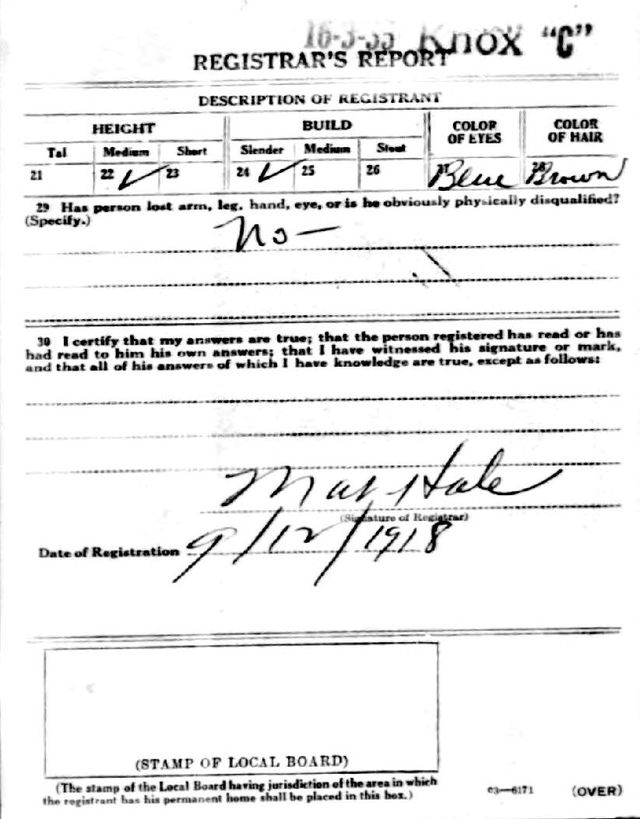 16-3-35 Knox "C"
REGISTRAR'S REPORT
DESCRIPTION OF REGISTRANT
HEIGHT BUILD COLOR OF EYES COLOR OF HAIR
Tal Medium Short Slender Medium Stout
21 22 ✓ 23 24 ✓ 25 26 27 Blue 28 Brown
29 Has person lost arm, leg, hand, eye, or is he obviously physically disqualified?
(Specify.)
No —
30 I certify that my answers are true; that the person registered has read or has
had read to him his own answers; that I have witnessed his signature or mark,
and that all of his answers of which I have knowledge are true, except as follows:
Hale
(Signature of Registrar)
Date of Registration 9/12/1918
(STAMP OF LOCAL BOARD)
(The stamp of the Local Board having jurisdiction of the area in which
the registrant has his permanent home shall be placed in this box.)
03—6171 (OVER)